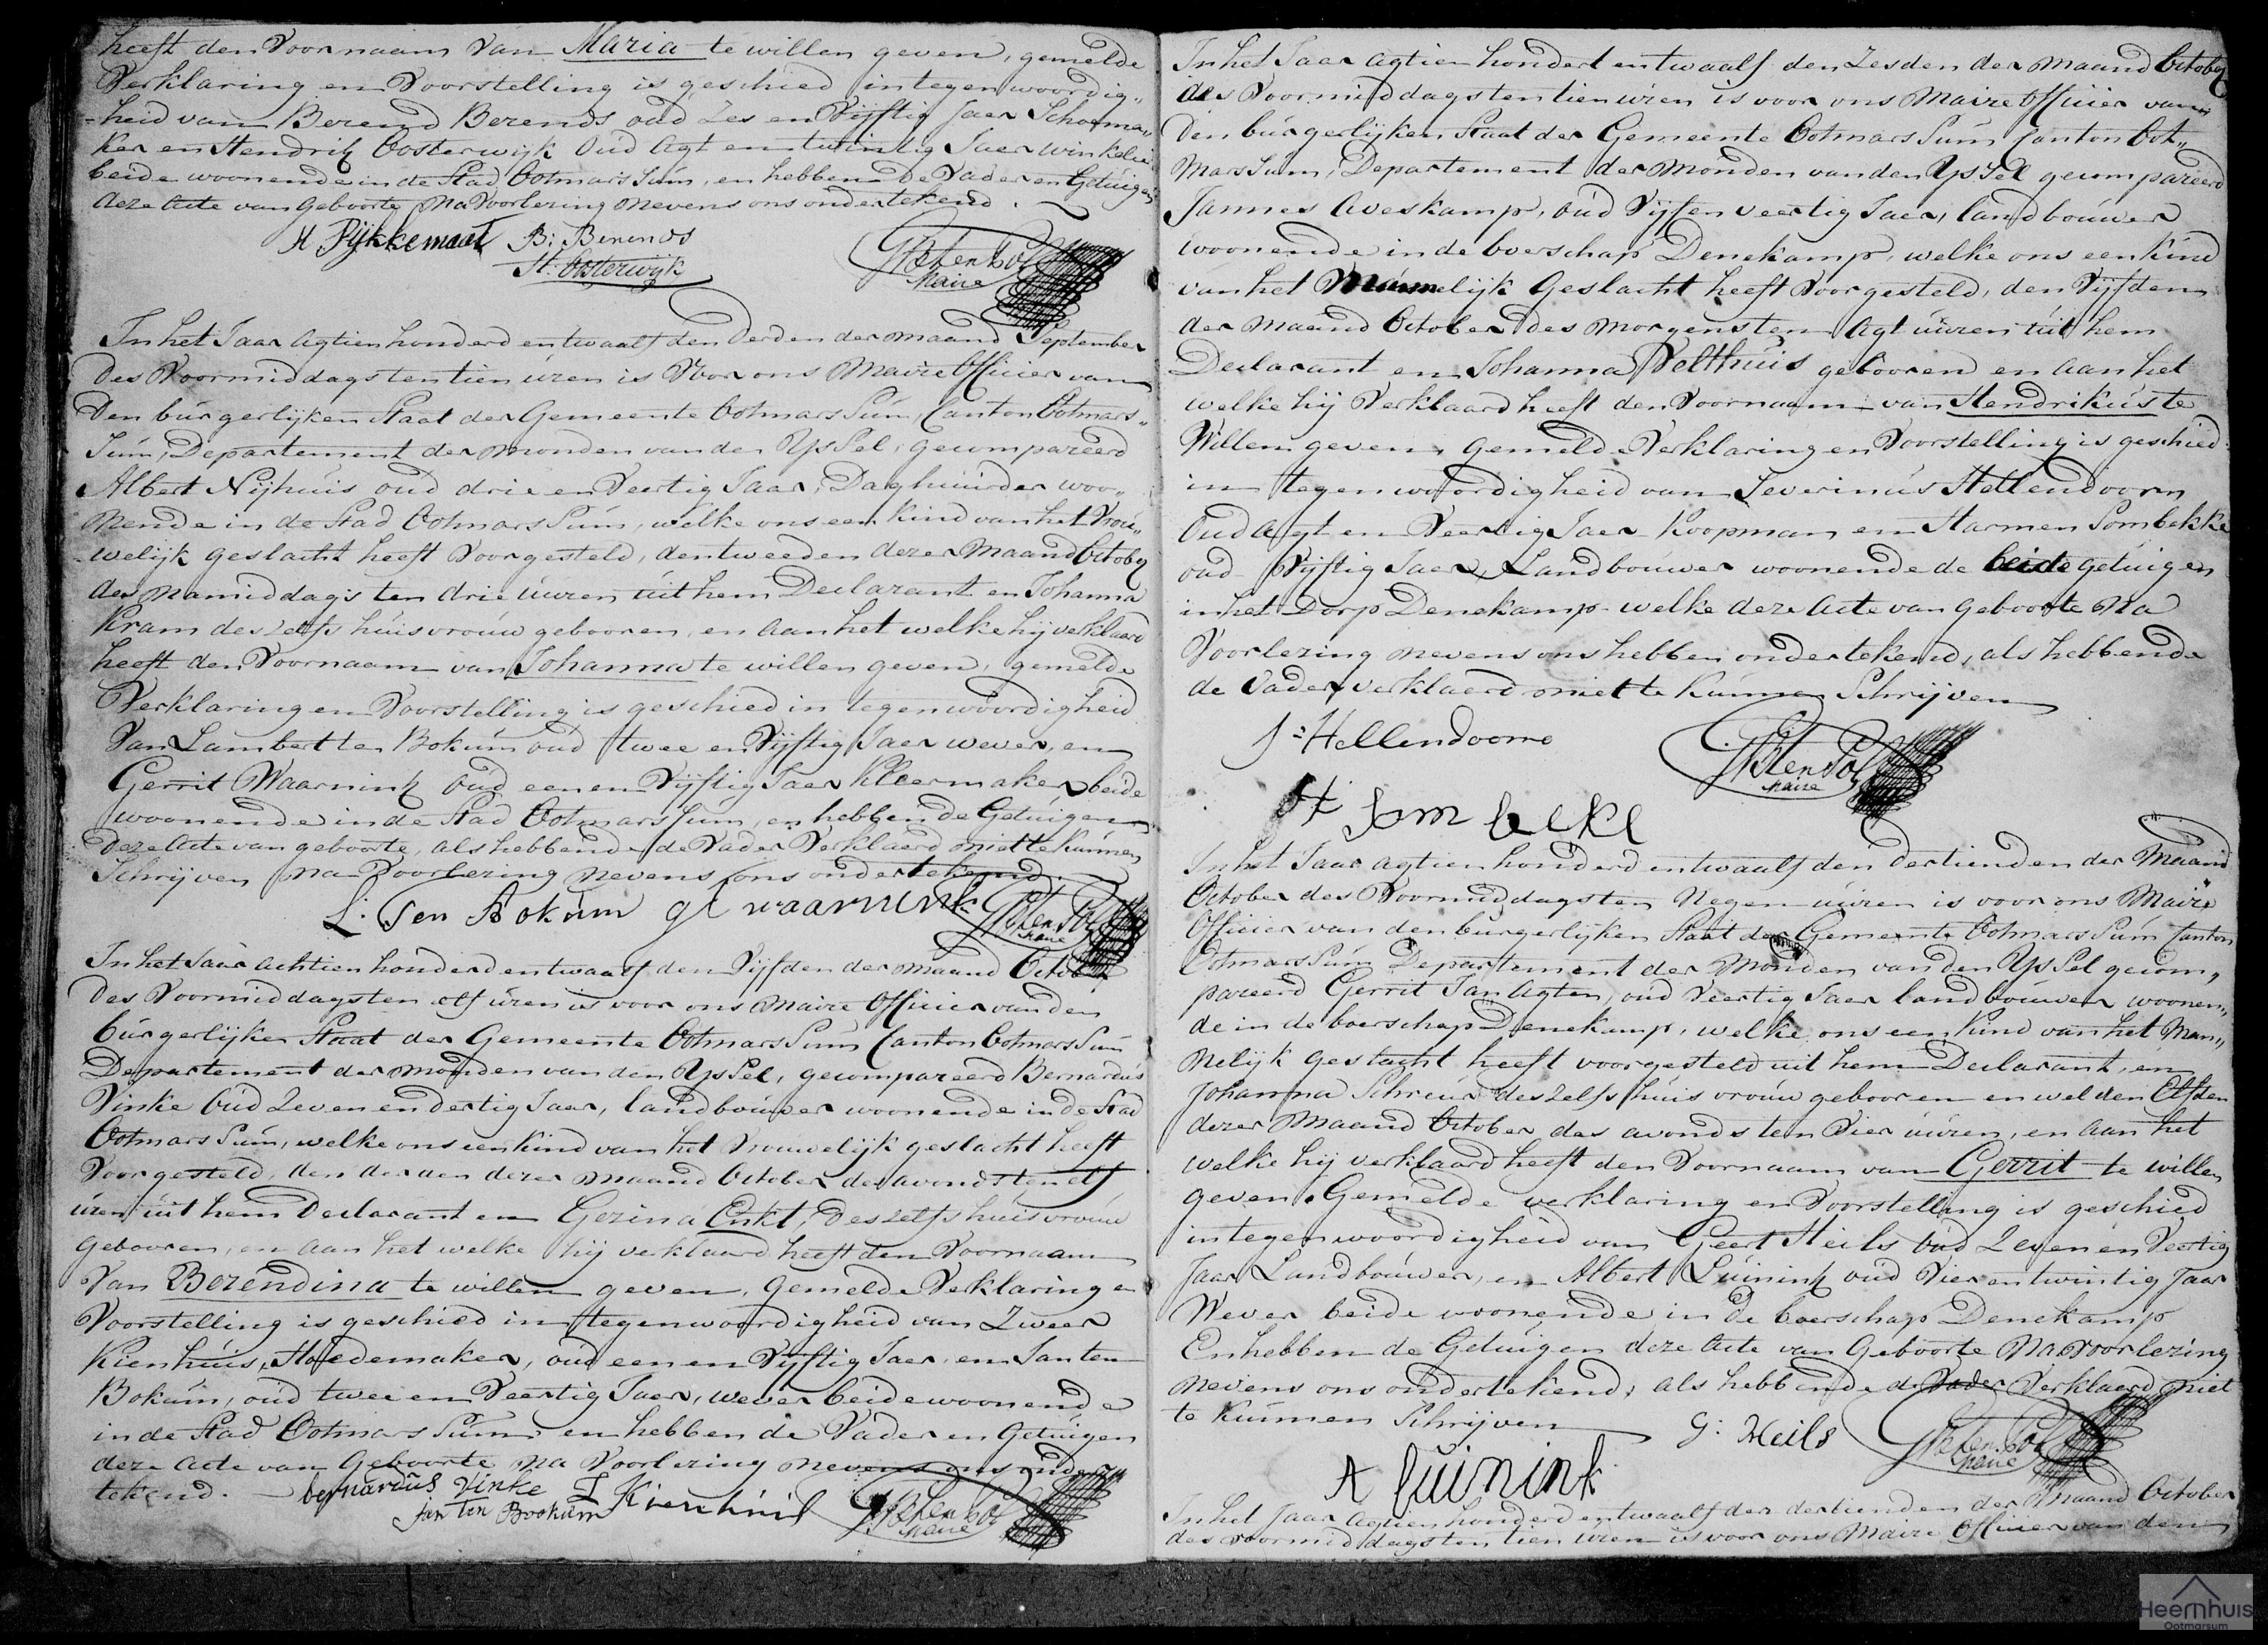 heeft den Voornaam Van Maria te willen geven, gemelde
Verklaring en Voorstelling is geschied in tegenwoordig„
-heid van Berend Berends oud Zes en Vijftig Jaer Schoema„
ker en Hendrik Oosterwijk Oud Agt en twintig Jaer winkelier
beide woonende in de Stad Ootmarssum, en hebben de Vader en Getuigen
deze Acte van Geboorte Na Voorlezing Nevens ons ondertekend.
H Pijkkemaat B: Berends
H: Oosterwijk
Maire
In het Jaar Agtien honderd en twaalf den Derden der maand September
Des Voormiddags ten tien uren is Voor ons Maire Officier van
Den burgerlijken Staat der Gemeente Ootmarssum, Canton Ootmars„
sum, Departement der Monden van den Yssel, gecompareerd
Albert Nijhuis oud drie en Veertig Jaar, Daghuurder woo„
nende in de Stad Ootmarssum, welke ons een kind van het Vrou„
-welijk geslacht heeft Voorgesteld, den tweeden dezer Maand October
des Namiddags ten drie uuren uit hem Declarant en Johanna
Kram des zelfs huisvrouw gebooren, en aan het welke hij verklaard
heeft den Voornaam van Johanna te willen geven, gemelde
Verklaring en Voorstelling is geschied in tegenwoordigheid
Van Lambert ten Bokum oud twee en Vijftig Jaer wever, en
Gerrit Waarnink oud een en Vijftig Jaer Kleermaker beide
woonende in de Stad Ootmarssum, en hebben de Getuigen
Deze Acte van geboorte, als hebbende de Vader Verklaerd niet te kunnen
Schrijven na Voorlezing nevens ons ondertekend.
L: Ten Bokum g waarnink
Maire
In het Jaar Achtien honderd en twaalf den Vijfden der maand October
Des Voormiddags ten elf uren is voor ons Maire Officier van den
burgerlijken Staat der Gemeente Ootmarssum Canton Ootmarssum
Departement der Monden van den Yssel, gecompareerd Bernardus
Vinke Oud Zeven en dertig Jaar, landbouwer woonende in de Stad
Ootmarssum, welke ons een kind van het Vrouwelijk geslacht heeft
Voorgesteld, den derden dezer maand October des avonds ten elf
uren uit hem Declarant en Gezina Enkt, des zelfs huisvrouw
Gebooren, en aan het welke hij verklaard heeft den Voornaam
Van Berendina te willen geven, Gemelde Verklaring en
Voorstelling is geschied in tegenwoordigheid van Zweer
Kienhuis, Hoedemaker, oud een en Vijftig Jaer, en Jan ten
Bokum, oud twee en Veertig Jaer, wever beide woonende
in de Stad Ootmarssum en hebben de Vader en Getuigen
deze Acte van Geboorte Na Voorlezing Nevens ons onder
tekend. bernardus Vinke Z Kienhuis
Jan Ten Bookum
Maire
In het Jaar Agtien hondert en twaalf den Zesden der maand October
des Voormiddags ten tien uren is voor ons Maire Officier van
Den burgerlijken Staat der Gemeente Ootmarssum Canton Oot„
marssum, Departement der Monden van den Yssel gecompareerd
Jannes Aveskamp, oud Vijf en veertig Jaer, landbouwer
woonende in de boerschap Denekamp, welke ons een kind
van het Mannelijk Geslacht heeft Voorgesteld, den Vijfden
der Maand October des morgens ten Agt uuren uit hem
Declarant en Johanna Velthuis gebooren en aan het
welke hij Verklaard heeft den Voornaam van Hendrikus te
Willen geven, gemelde Verklaring en Voorstelling is geschied
in tegenwoordigheid van Severinus Hellendoorn
Oud Agt en Veertig Jaer Koopman en Harmen Sombekke
oud Vijftig Jaer, Landbouwer woonende de beide getuigen
in het Dorp Denekamp welke deze Acte van geboorte Na
Voorlezing nevens ons hebben ondertekend, als hebbende
de Vader verklaerd niet te kunnen Schrijven
S: Hellendoorn
Maire
H Som bekke
In het Jaar agtien honderd en twaalf den dertienden der Maand
October des Voormiddags ten Negen uuren is voor ons Maire
Officier van den burgerlijken Staat der Gemeente Ootmarssum Canton
Ootmarssum Departement der Monden van den Yssel gecom„
pareerd Gerrit Jan Agten, oud Veertig Jaer landbouwer woonen„
de in de boerschap Denekamp, welke ons een kind van het Man„
nelijk geslacht heeft voorgesteld uit hem Declarant, en
Johanna Schreur des zelfs huisvrouw gebooren en wel den Elfden
dezer Maand October des avonds ten Vier uuren, en aan het
welke hij verklaard heeft den Voornaam van Gerrit te willen
geven. Gemelde verklaring en Voorstelling is geschied
in tegenwoordigheid van Geert Heils Oud Zeven en Veertig
Jaar Landbouwer, en Albert Luinink oud Vier en twintig Jaar
Wever beide woonende in de boerschap Denekamp
En hebben de Getuigen deze Acte van Geboorte Na Voorlezing
nevens ons ondertekend, als hebbende de Vader Verklaerd niet
te kunnen Schrijven
G: Heils
Maire
A luinink
In het Jaar Agtien honderd en twaalf den dertienden der Maand October
des voormiddags ten tien uren is voor ons Maire Officier van den
Heemhuis
Ootmarsum